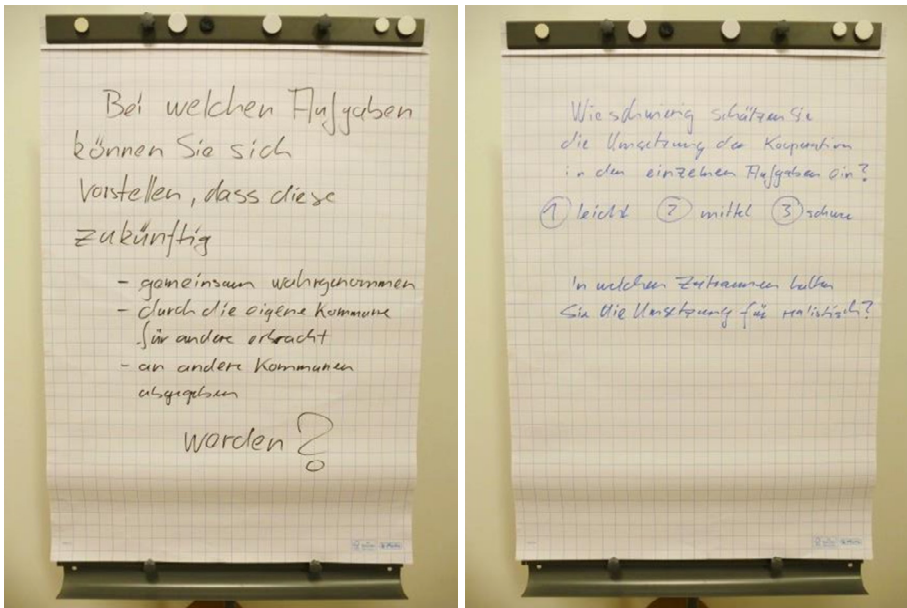 Bei welchen Aufgaben
können Sie sich
vorstellen, dass diese
zukünftig
- gemeinsam wahrgenommen
- durch die eigene Kommune
für andere erbracht
- an andere Kommunen
abgegeben
werden?
Wie schwierig schätzen Sie
die Umsetzung der Kooperation
in den einzelnen Aufgaben ein?
1 leicht 2 mittel 3 schwer
In welchen Zeiträumen halten
Sie die Umsetzung für realistisch?